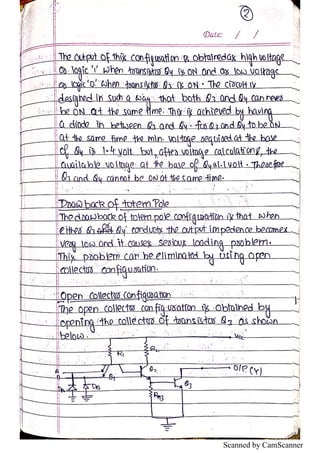 ②
Date: / /
The output of this configuration is obtained as high voltage
as logic '1' when transistor Q4 is ON and as low voltage
as logic '0' when transistor Q3 is ON. The circuit is
designed in such a way that both Q3 and Q4 can never
be ON at the same time. This is achieved by having
a diode in between Q3 and Q4. for Q3 and Q4 to be ON
at the same time the min voltage required at the base
of Q4 is 1.4 volt but, after voltage calculations, the
available voltage at the base of Q4 is 1 volt. Therefore
Q3 and Q4 cannot be ON at the same time.
Drawback of totem Pole
The drawback of totem pole configuration is that when
either Q3 Q4 conducts the output impedence becomes
very low and it causes serious loading problem.
This problem can be eliminated by using open
collector configuration.
Open Collector Configuration
The open collector configuration is obtained by
opening the collector of transistor Q3 as shown
below.
Vcc
R1
R2
O/P (Y)
A
B
Q1
Q2
Q3
DB
Scanned by CamScanner